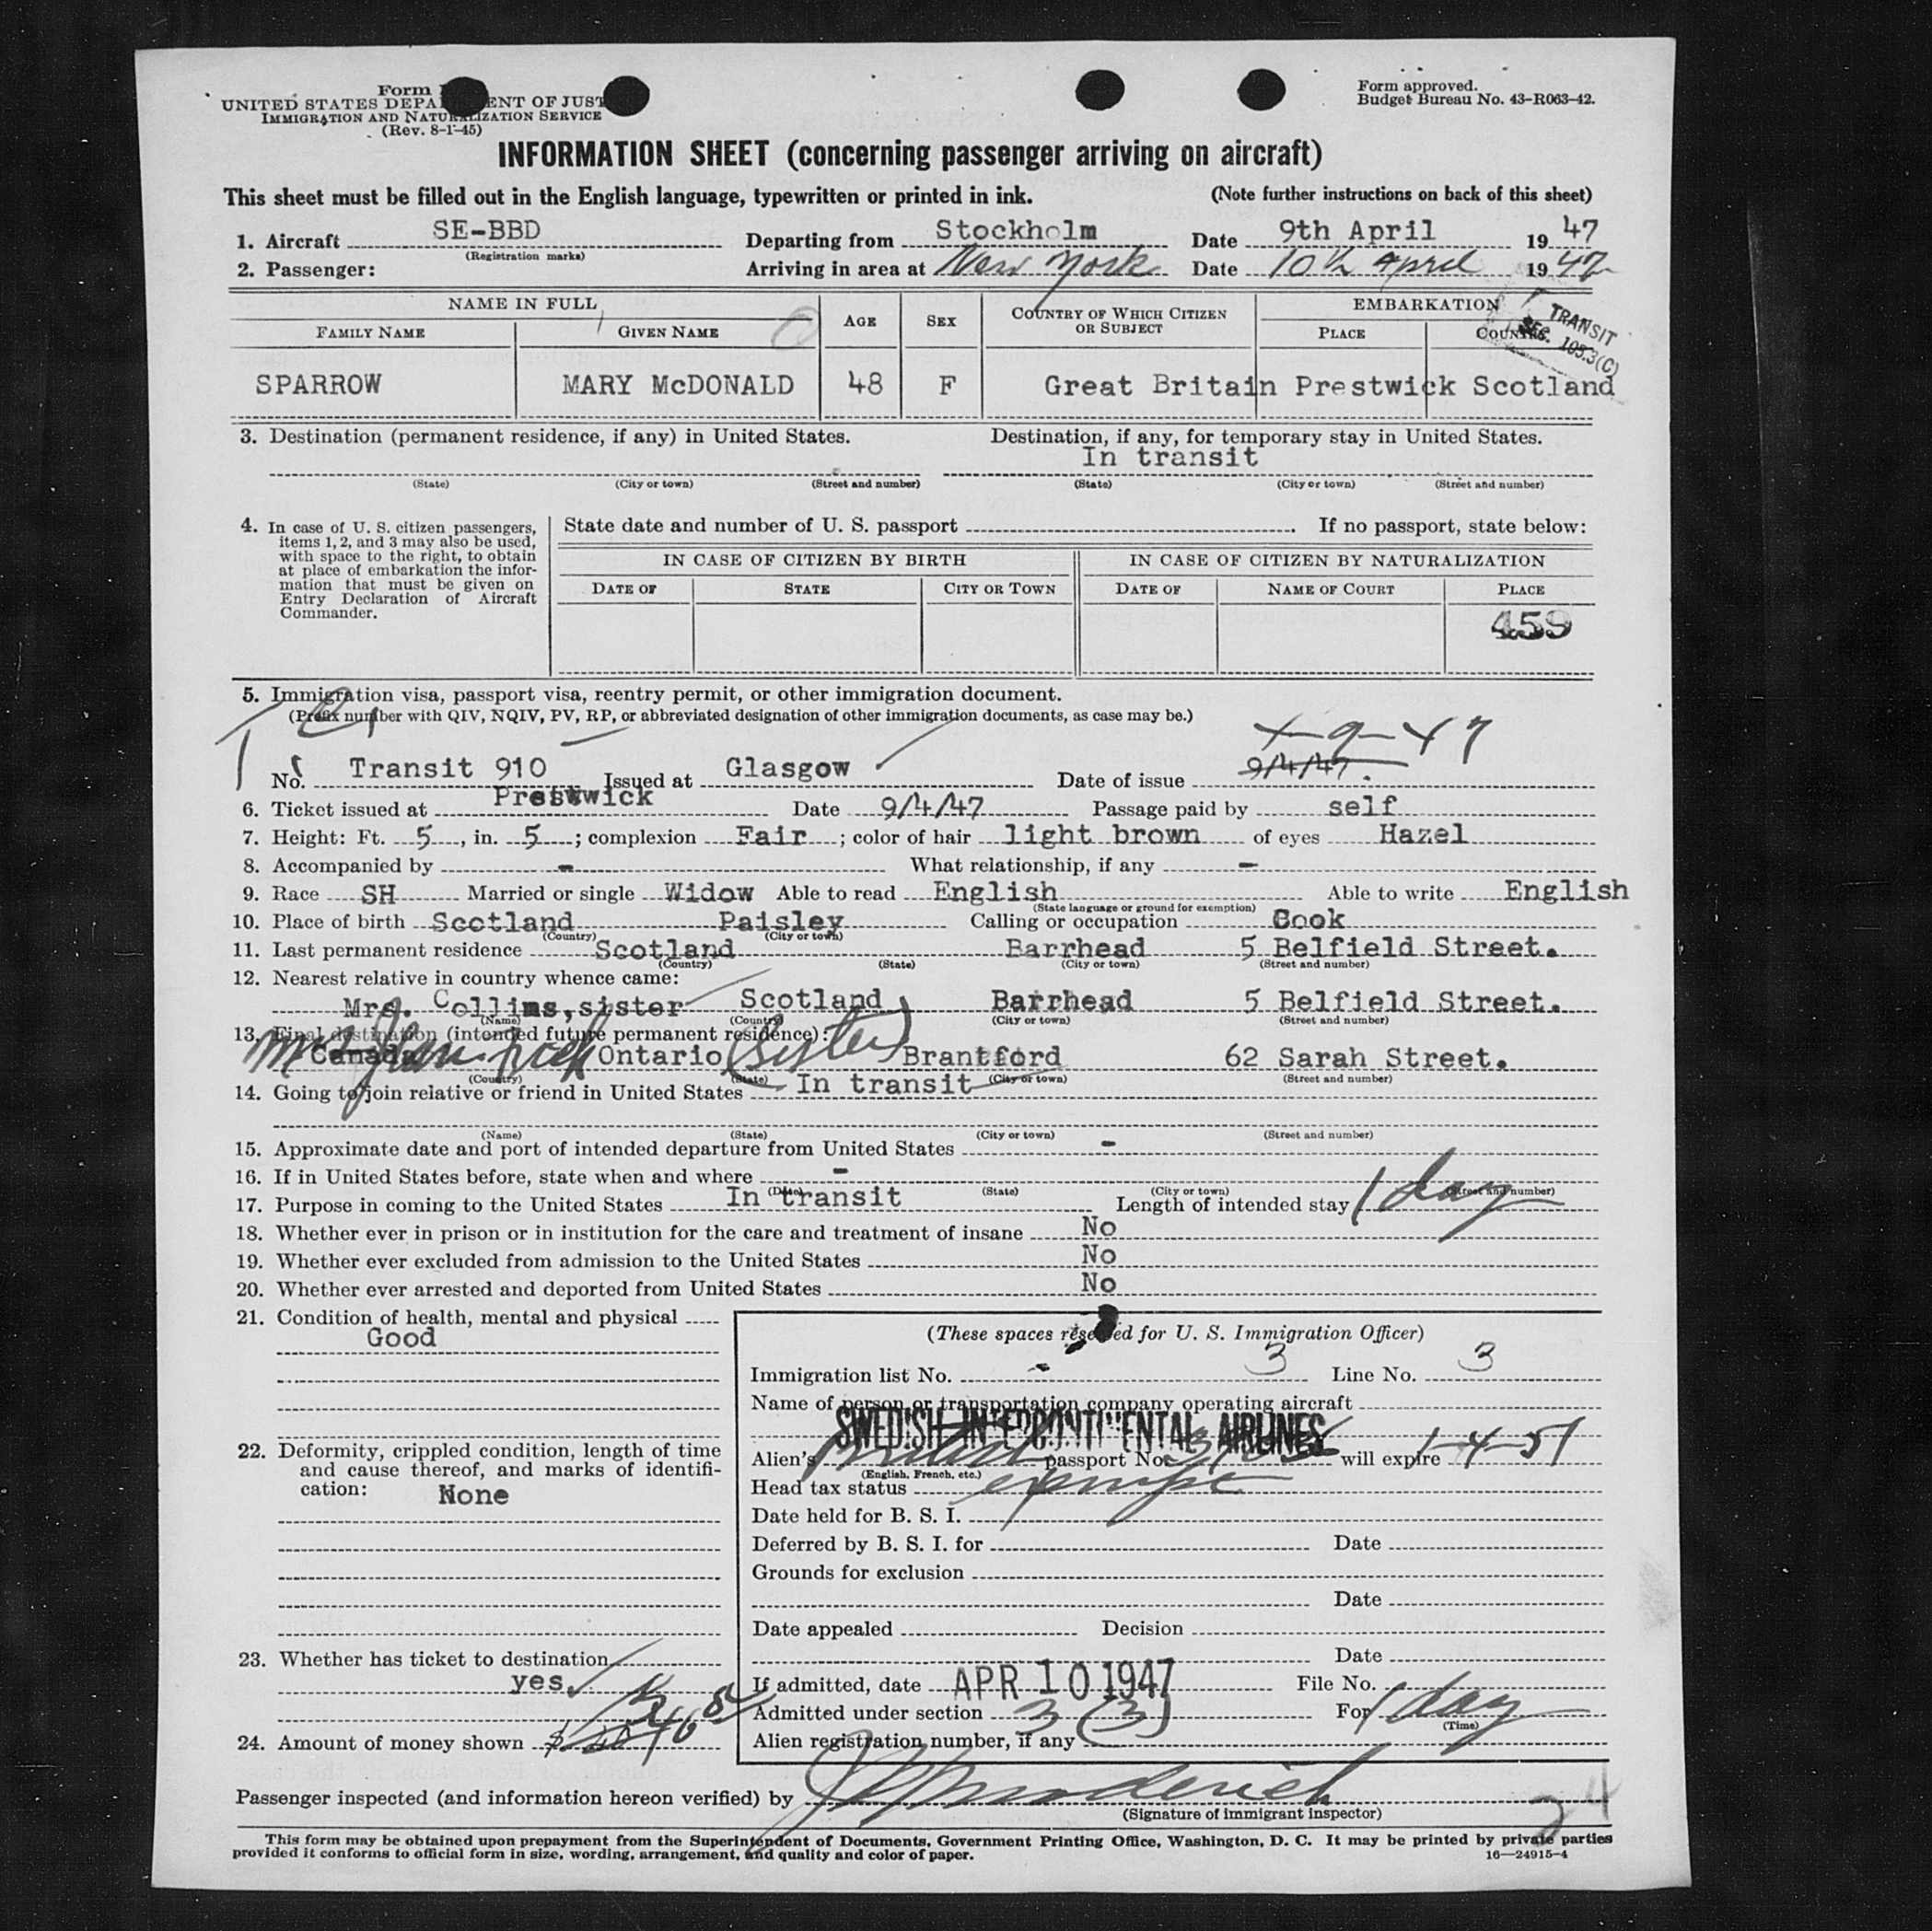 Form
UNITED STATES DEPA ENT OF JUST
IMMIGRATION AND NATURALIZATION SERVICE
(Rev. 8-1-45)
Form approved.
Budget Bureau No. 43-R063-42.
INFORMATION SHEET (concerning passenger arriving on aircraft)
This sheet must be filled out in the English language, typewritten or printed in ink. (Note further instructions on back of this sheet)
1. Aircraft SE-BBD Departing from Stockholm Date 9th April 19 47
(Registration marks)
2. Passenger: Arriving in area at New York Date 10th April 19 47
NAME IN FULL AGE SEX COUNTRY OF WHICH CITIZEN OR SUBJECT EMBARKATION
FAMILY NAME GIVEN NAME PLACE COUNTRY
TRANSIT
SEC. 105.3(C)
SPARROW MARY McDONALD 48 F Great Britain Prestwick Scotland
3. Destination (permanent residence, if any) in United States. Destination, if any, for temporary stay in United States.
In transit
(State) (City or town) (Street and number) (State) (City or town) (Street and number)
4. In case of U. S. citizen passengers, items 1, 2, and 3 may also be used, with space to the right, to obtain at place of embarkation the information that must be given on Entry Declaration of Aircraft Commander.
State date and number of U. S. passport . If no passport, state below:
IN CASE OF CITIZEN BY BIRTH IN CASE OF CITIZEN BY NATURALIZATION
DATE OF STATE CITY OR TOWN DATE OF NAME OF COURT PLACE
459
5. Immigration visa, passport visa, reentry permit, or other immigration document.
(Prefix number with QIV, NQIV, PV, RP, or abbreviated designation of other immigration documents, as case may be.)
4-9-47
No. Transit 910 Issued at Glasgow Date of issue 9/4/47.
6. Ticket issued at Prestwick Date 9/4/47 Passage paid by self
7. Height: Ft. 5, in. 5; complexion Fair; color of hair light brown of eyes Hazel
8. Accompanied by - What relationship, if any -
9. Race SH Married or single Widow Able to read English Able to write English
(State language or ground for exemption)
10. Place of birth Scotland Paisley Calling or occupation Cook
(Country) (City or town)
11. Last permanent residence Scotland Barrhead 5 Belfield Street.
(Country) (State) (City or town) (Street and number)
12. Nearest relative in country whence came:
Mrs. Collins, sister Scotland Barrhead 5 Belfield Street.
(Name) (Country) (City or town) (Street and number)
13. Final destination (intended future permanent residence):
(Sister)
Canada Ontario Brantford 62 Sarah Street.
(Country) (State) (City or town) (Street and number)
14. Going to join relative or friend in United States In transit
(Name) (State) (City or town) (Street and number)
15. Approximate date and port of intended departure from United States -
16. If in United States before, state when and where -
(Date) (State) (City or town) (Street and number)
17. Purpose in coming to the United States In transit Length of intended stay 1 day
18. Whether ever in prison or in institution for the care and treatment of insane No
19. Whether ever excluded from admission to the United States No
20. Whether ever arrested and deported from United States No
21. Condition of health, mental and physical
Good
22. Deformity, crippled condition, length of time and cause thereof, and marks of identification:
None
23. Whether has ticket to destination
yes.
24. Amount of money shown
(These spaces reserved for U. S. Immigration Officer)
Immigration list No. 3 Line No. 3
Name of person or transportation company operating aircraft
SWEDISH INTERCONTINENTAL AIRLINES
Alien's British passport No. will expire 1-4-51
(English, French, etc.)
Head tax status exempt
Date held for B. S. I.
Deferred by B. S. I. for Date
Grounds for exclusion
Date
Date appealed Decision
Date
If admitted, date APR 10 1947 File No.
Admitted under section 3 (3) For 1 day
(Time)
Alien registration number, if any
Passenger inspected (and information hereon verified) by
(Signature of immigrant inspector)
24
This form may be obtained upon prepayment from the Superintendent of Documents, Government Printing Office, Washington, D. C. It may be printed by private parties
provided it conforms to official form in size, wording, arrangement, and quality and color of paper. 16—24915-4